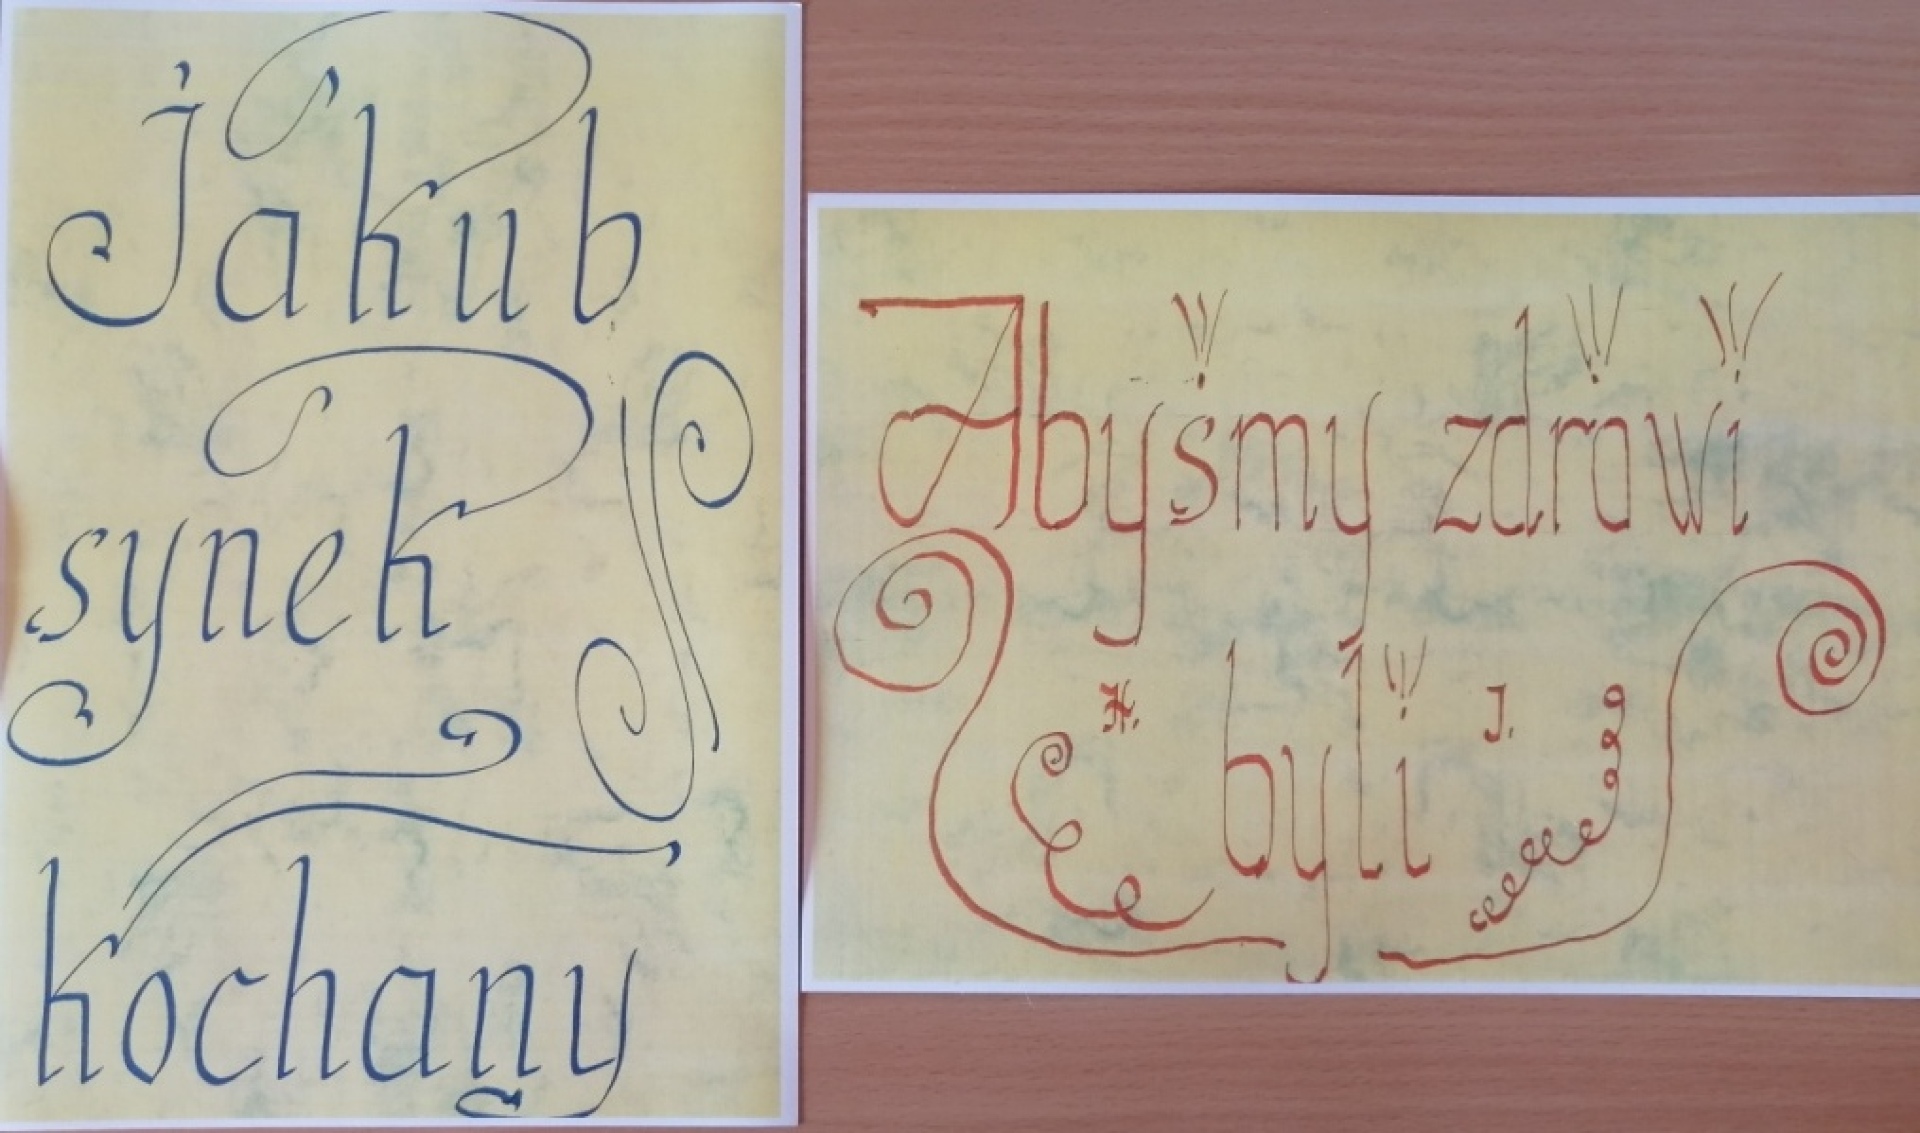 jakub
synek
kochany
Abyśmy zdrowi
byli
H. J.